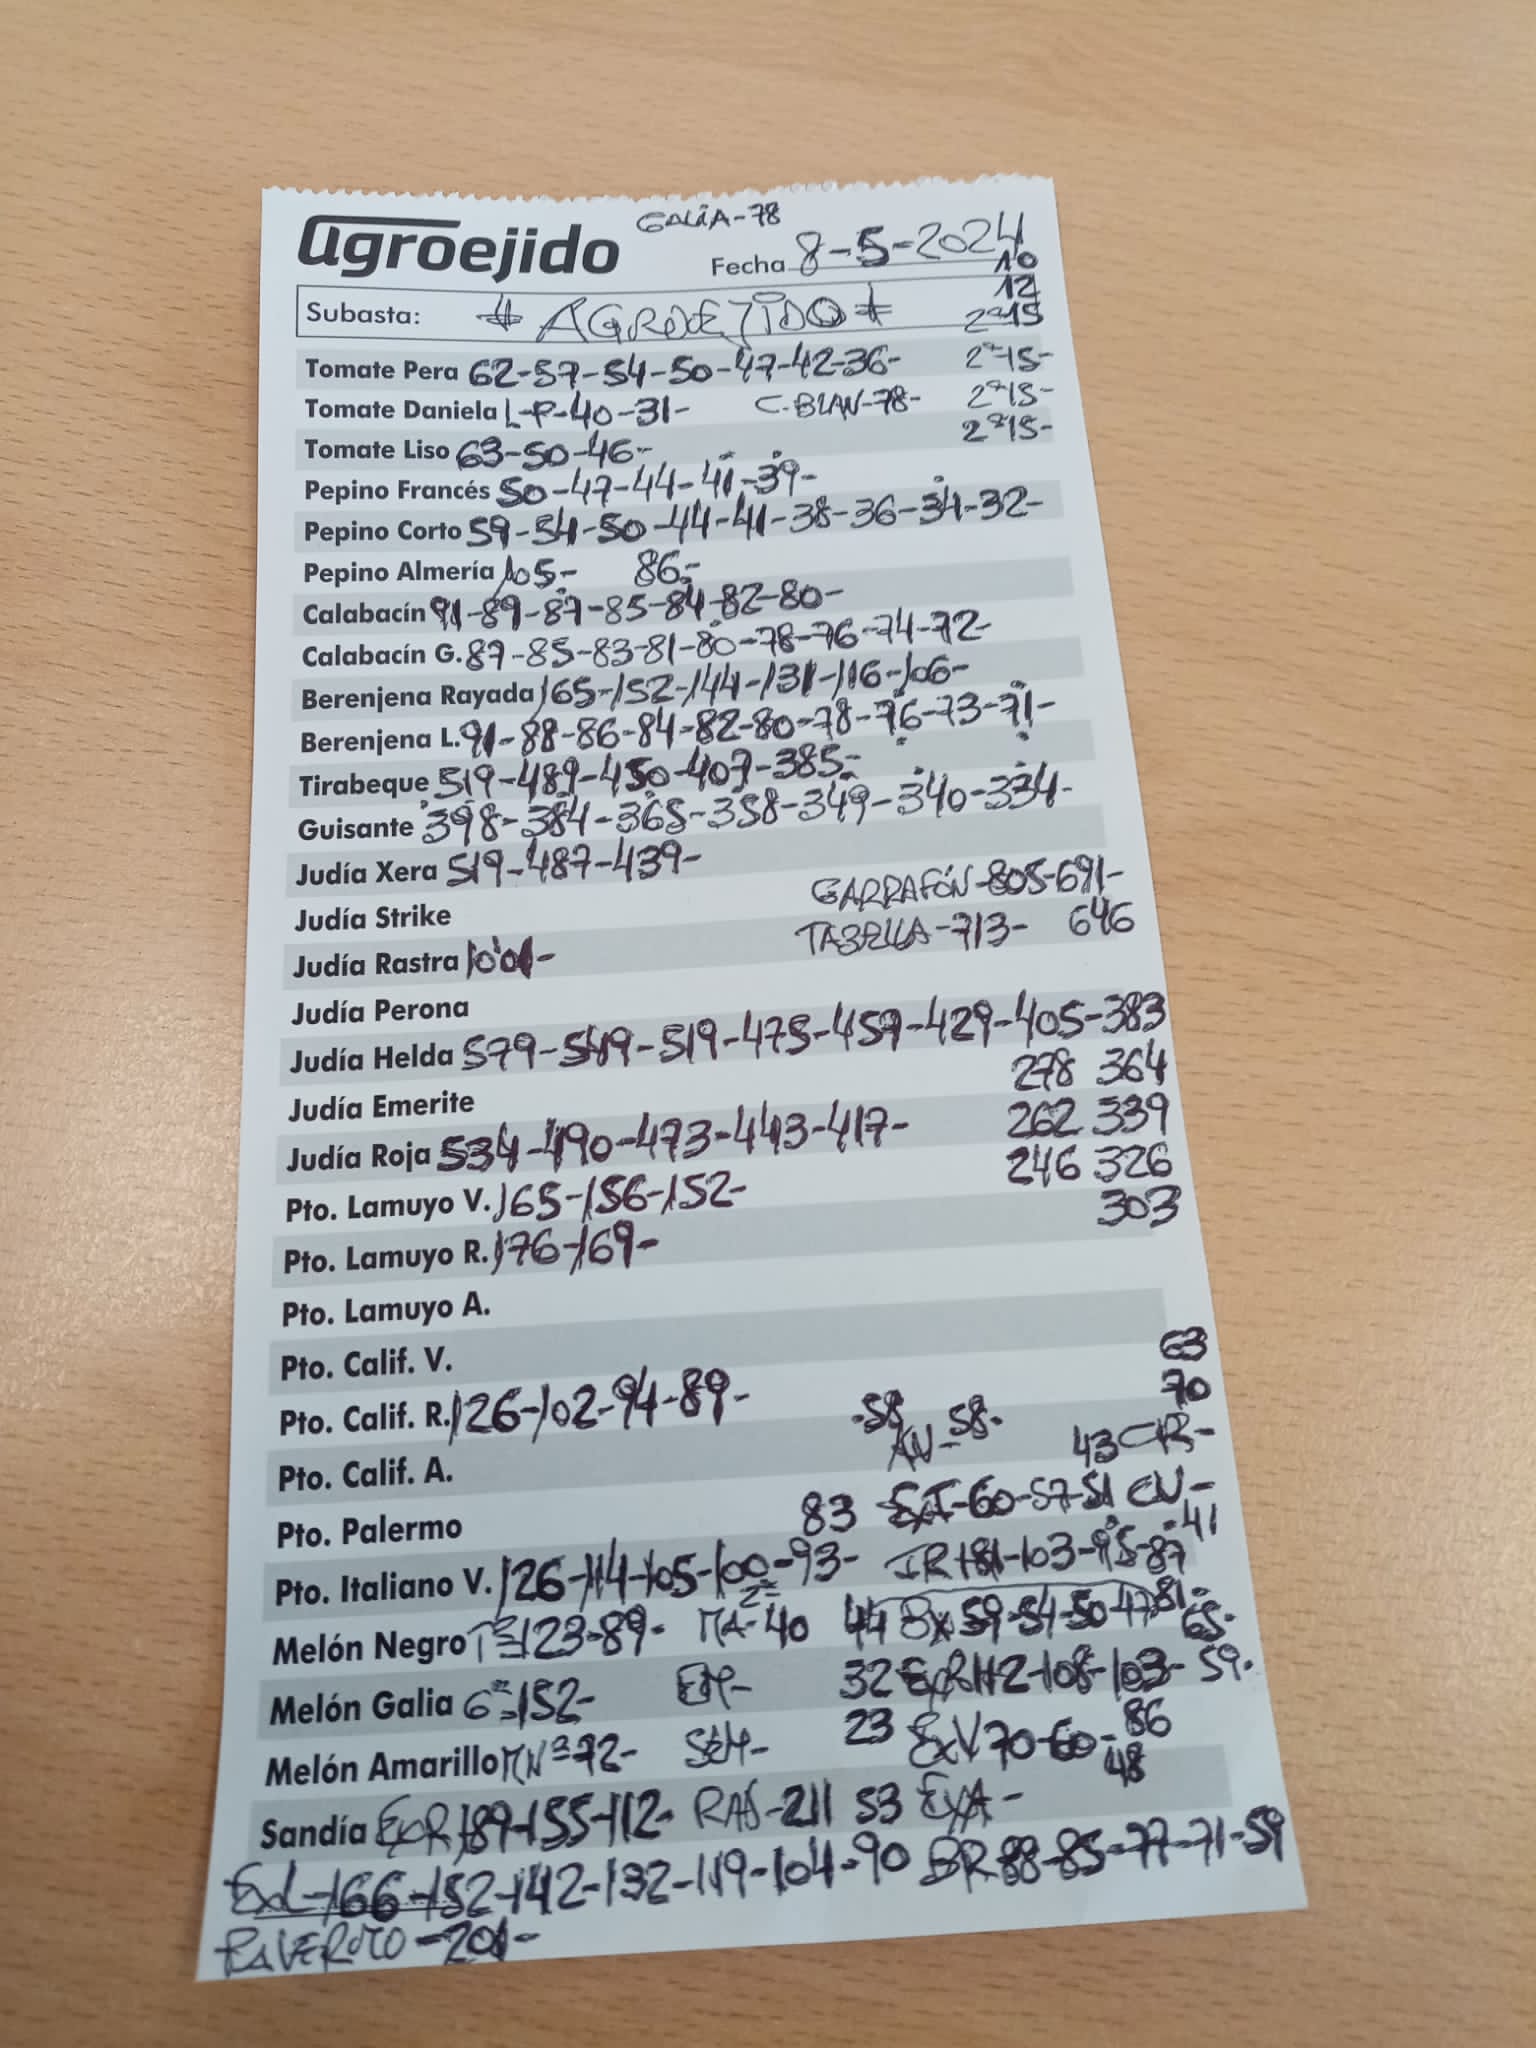 GALIA-78
agroejido
Fecha 8-5-2024
10
12
Subasta: AGROEJIDO
2ª15
Tomate Pera 62-57-54-50-47-42-36- 2ª15-
Tomate Daniela L-P-40-31- C-BLAN-78- 2ª15-
Tomate Liso 63-50-46- 2ª15-
Pepino Francés 50-47-44-41-39-
Pepino Corto 59-54-50-44-41-38-36-34-32-
Pepino Almería 105- 86-
Calabacín 91-89-87-85-84-82-80-
Calabacín G. 87-85-83-81-80-78-76-74-72-
Berenjena Rayada 165-152-144-131-116-106-
Berenjena L. 91-88-86-84-82-80-78-76-73-71-
Tirabeque 519-489-450-407-385-
Guisante 398-384-365-358-349-340-334-
Judía Xera 519-487-439-
Judía Strike GARRAFÓN-805-691-
Judía Rastra 1001- TABELLA-713- 646
Judía Perona
Judía Helda 579-549-519-475-457-429-405-383
278 364
Judía Emerite
262 339
Judía Roja 534-490-473-443-417-
246 326
Pto. Lamuyo V. 165-156-152-
303
Pto. Lamuyo R. 176-169-
Pto. Lamuyo A.
Pto. Calif. V. 63
70
Pto. Calif. R. 126-102-94-89- 58
AN-58- 43 CIR-
Pto. Calif. A.
Pto. Palermo 83 60-57-51 CN-
41
Pto. Italiano V. 126-114-105-100-93- IR 181-103-95-87
81-
Melón Negro 123-89- 2ª MA-40 44 Bx 59-54-50-47
65-
Melón Galia 152- 32 ExR 112-108-103- 59-
Melón Amarillo 72- SEM- 23 ExV 70-60- 86
48
Sandía ExR 189-155-112- RAJ-211 53 ExA-
ExL-166-152-142-132-119-104-90 BR 88-85-77-71-59
201-